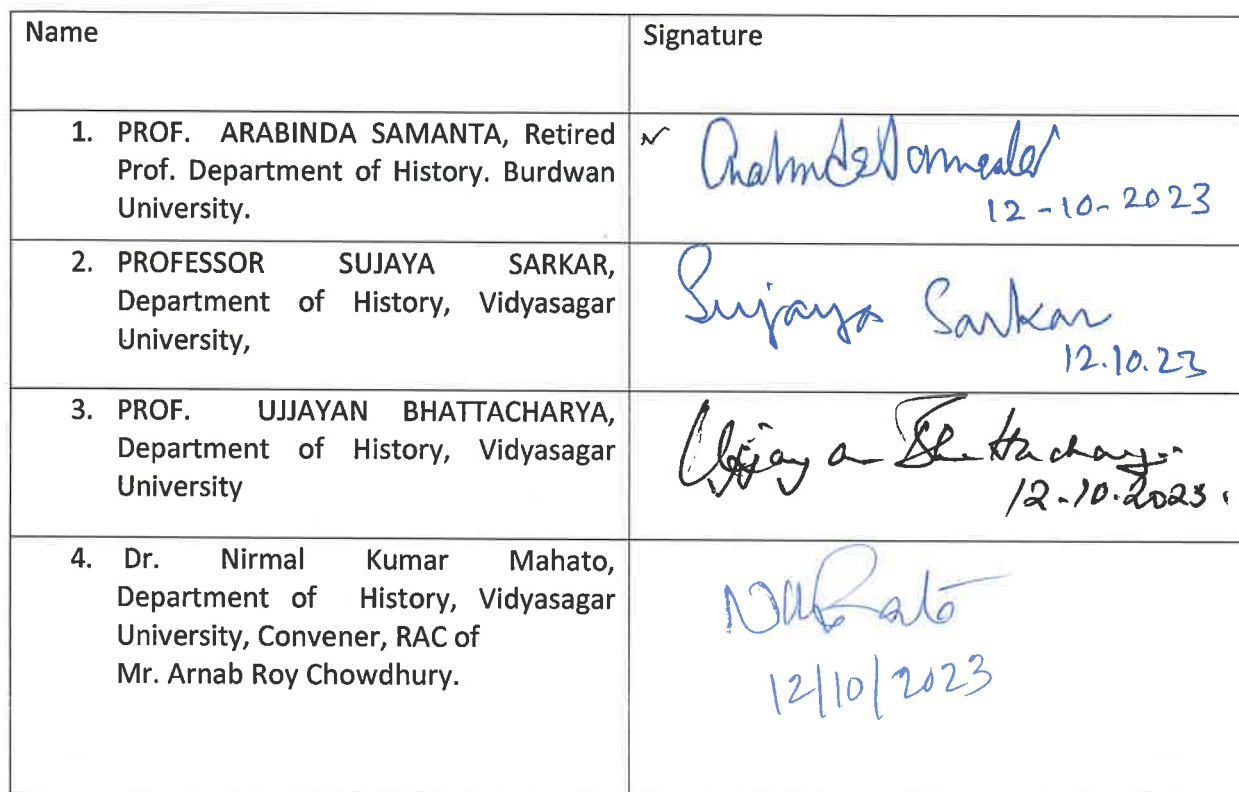 Name
Signature
1. PROF. ARABINDA SAMANTA, Retired
Prof. Department of History. Burdwan
University.
12-10-2023
2. PROFESSOR SUJAYA SARKAR,
Department of History, Vidyasagar
University,
Sujaya Sarkar
12.10.23
3. PROF. UJJAYAN BHATTACHARYA,
Department of History, Vidyasagar
University
Ujjayan Bhattacharya
12.10.2023.
4. Dr. Nirmal Kumar Mahato,
Department of History, Vidyasagar
University, Convener, RAC of
Mr. Arnab Roy Chowdhury.
12/10/2023